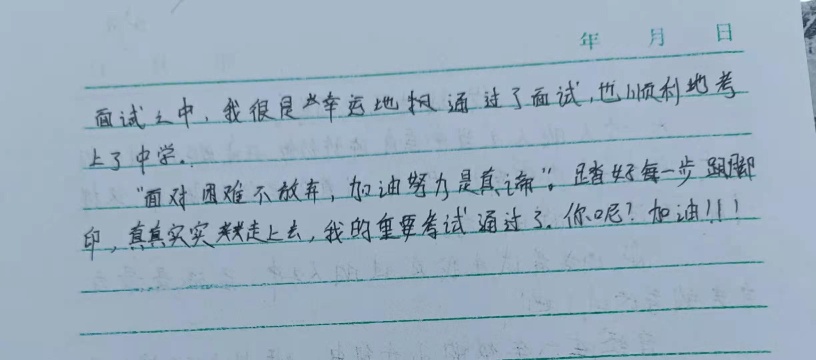 年 月 日
面试之中,我很是幸运地 通过了面试,也顺利地考
上了中学。
"面对困难不放弃,加油努力是真谛"。踏好每一步脚
印,真真实实走上去,我的重要考试通过了。你呢?加油!!!